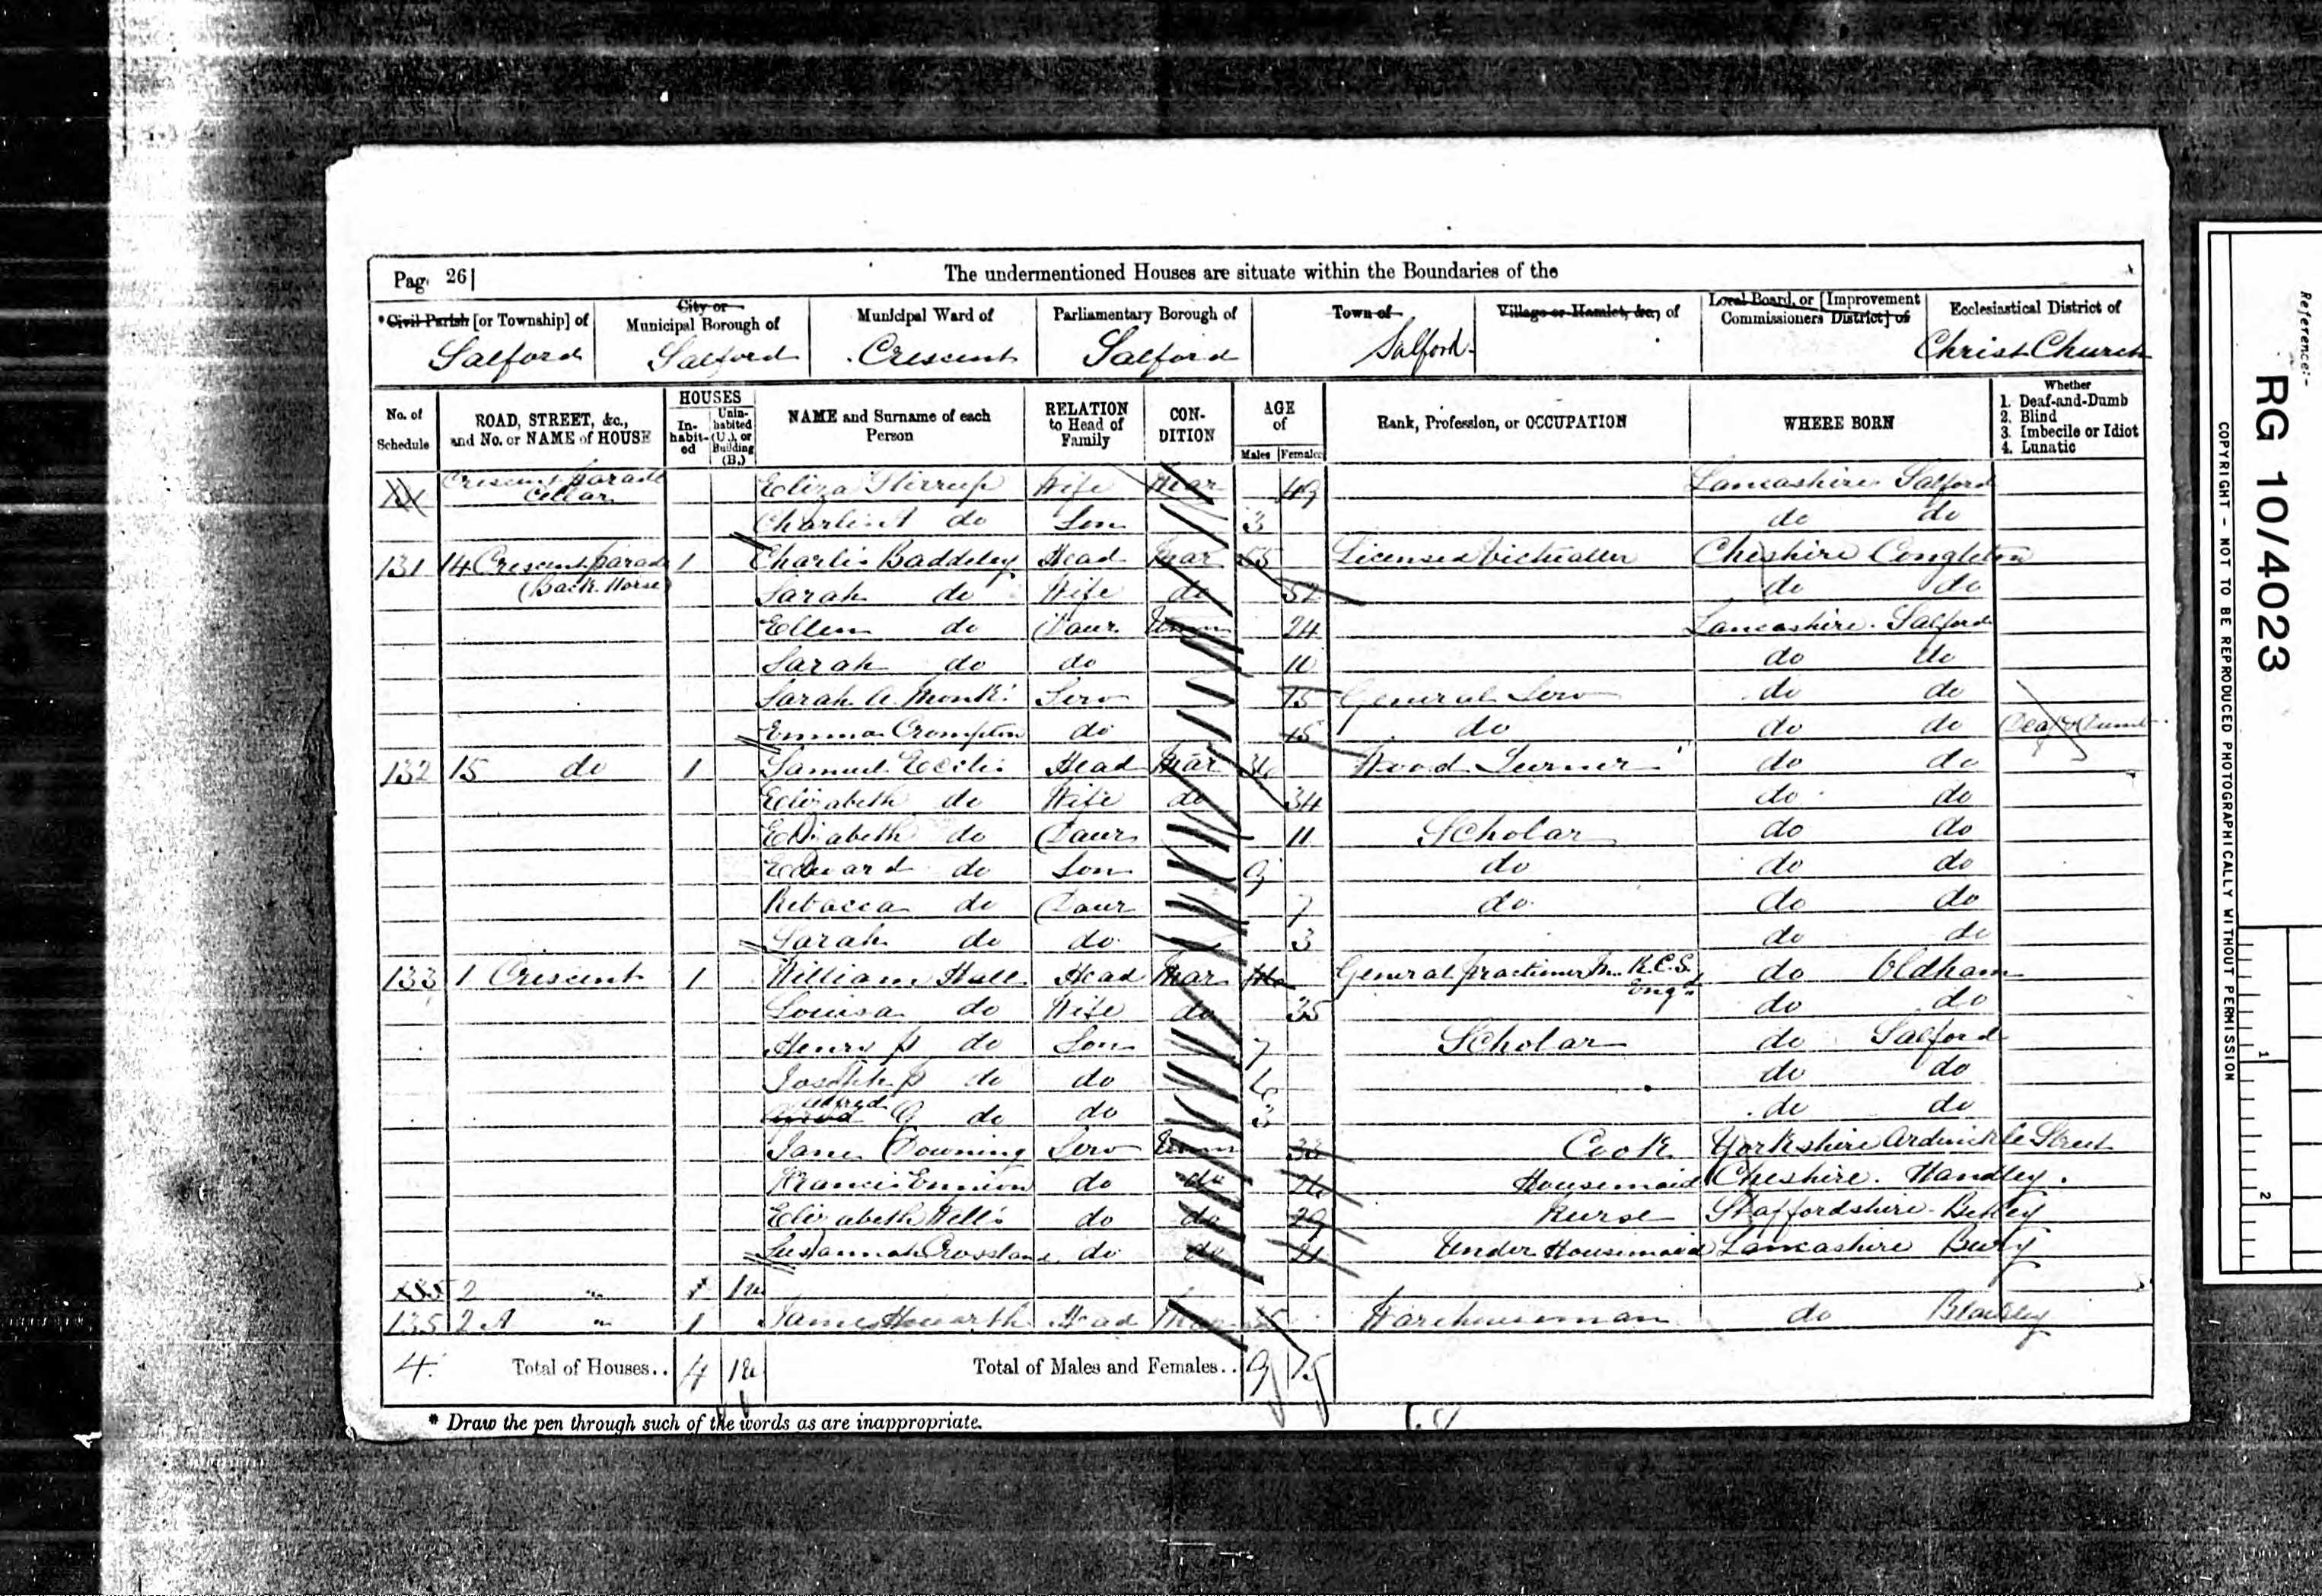 Page 26] The undermentioned Houses are situate within the Boundaries of the
*Civil Parish [or Township] of
City or Municipal Borough of
Municipal Ward of
Parliamentary Borough of
Town of
Village or Hamlet, &c., of
Local Board, or [Improvement Commissioners District] of
Ecclesiastical District of
Salford Salford Crescent Salford Salford Christ Church
No. of Schedule
ROAD, STREET, &c., and No. or NAME of HOUSE
HOUSES
In-habit-ed
Unin-habited (U.), or Building (B.)
NAME and Surname of each Person
RELATION to Head of Family
CON-DITION
AGE of
Males Females
Rank, Profession, or OCCUPATION
WHERE BORN
Whether
1. Deaf-and-Dumb
2. Blind
3. Imbecile or Idiot
4. Lunatic
Crescent Parade Cellar Eliza Stirrup Wife Mar 49 Lancashire Salford
Charles A do Son 3 do do
131 14 Crescent Parade 1 Charles Baddeley Head Mar 55 Licensed Victualler Cheshire Congleton
(Back Horse) Sarah do Wife do 52 do do
Ellen do Daur Unm 24 Lancashire Salford
Sarah do do 11 do do
Sarah A. Monk Serv 15 General Serv do do
Emma Crompton do 15 do do do Deaf & Dumb
132 15 do 1 Samuel Eccles Head Mar Wood Turner do do
Elizabeth do Wife do 34 do do
Elizabeth do Daur 11 Scholar do do
Edward do Son 9 do do do
Rebacca do Daur 7 do do do
Sarah do do 3 do do
133 1 Crescent 1 William Hall Head Mar General Practioner M. R.C.S. Engd do Oldham
Louisa do Wife do 35 do do
Henry P do Son 7 Scholar do Salford
Joseph P do do do do
Alfred G do do 3 do do
Jane Downing Serv Unm 33 Cook Yorkshire Street
Francis Ennion do do 26 Housemaid Cheshire. Handley.
Elizabeth Wells do do 29 Nurse Staffordshire Betley
Susannah Crossland do do 21 Under Housemaid Lancashire Bury
2 " 1 1u
135 2 A " 1 James Howarth Head Mar Warehouseman do Blackley
4 Total of Houses.. 4 1u Total of Males and Females.. 9 15
* Draw the pen through such of the words as are inappropriate.
Reference:-
RG 10/4023
COPYRIGHT - NOT TO BE REPRODUCED PHOTOGRAPHICALLY WITHOUT PERMISSION
1
2